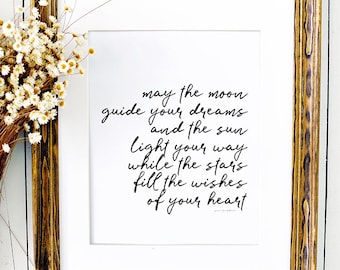 may the moon
guide your dreams
and the sun
light your way
while the stars
fill the wishes
of your heart